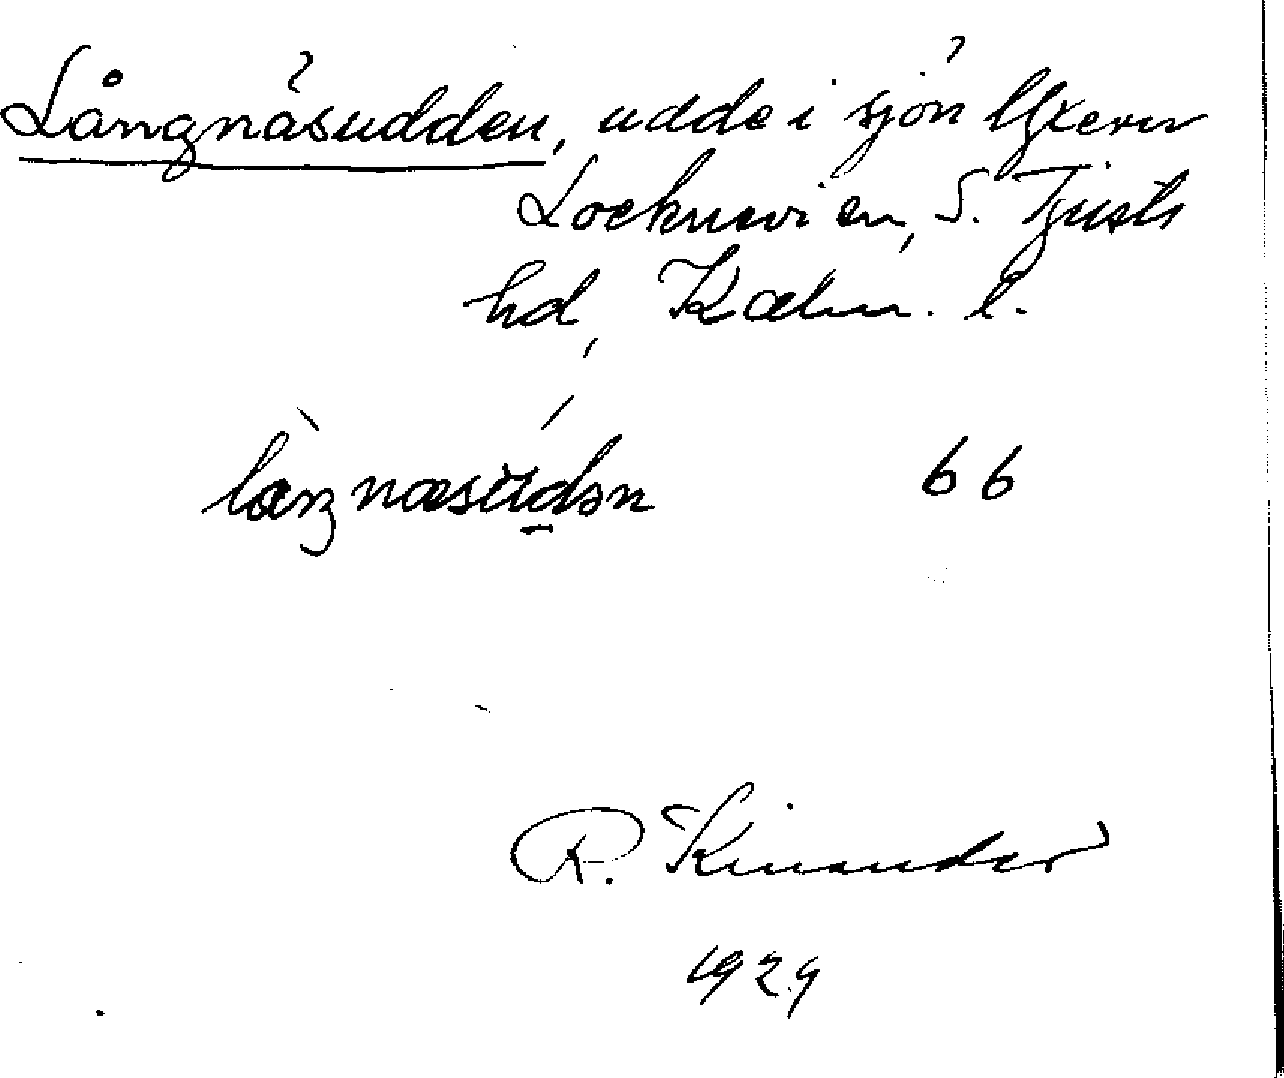 Långnäsudden, udde i sjön Yxern
Locknevi sn, S. Tjusts
hd, Kalm. l.
laŋnæsùdən 66
R. Kinander
1929